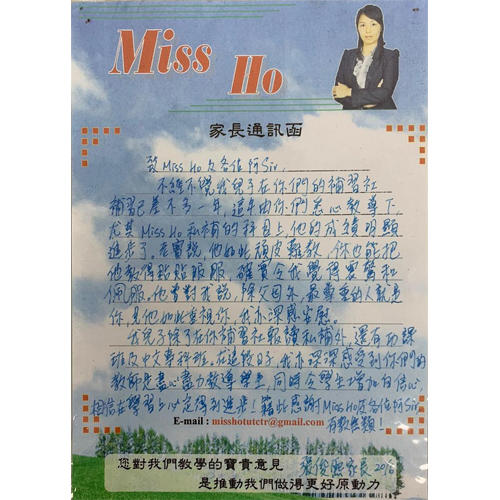 Miss Ho
家長通訊函
致Miss Ho及各位阿Sir,
不經不覺我兒子在你們的補習社
補習已差不多一年,這年由你們悉心教導下,
尤其Miss Ho私補的科目上,他的成績明顯
進步了。老實說,他如此頑皮難教,你也能把
他教得貼貼服服,確實令我覺得要驚和
佩服。他曾對我說,除父母外,最尊重的人就是
你,見他如此重視你,我亦深感安慰。
我兒子除了在你補習社報讀私補外,還有功課
班及中文專科班。在這些日子,我亦深深感受到你們的
教師是盡心盡力教導學生,同時令學生增加自信心,
相信在學習上必定得到進步!藉此感謝Miss Ho及各位阿Sir
有教無類!
E-mail : misshotutctr@gmail.com
您對我們教學的寶貴意見
家長 2016
是推動我們做得更好原動力